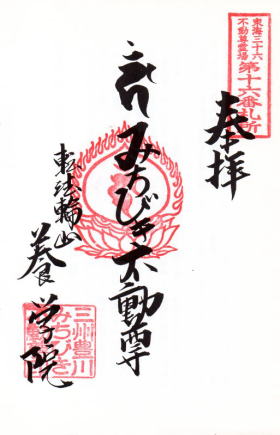 東海三十六
不動尊霊場
第十六番札所
奉拝
三州みちびき不動尊
転法輪山
養学院
三州豊川
みちびき